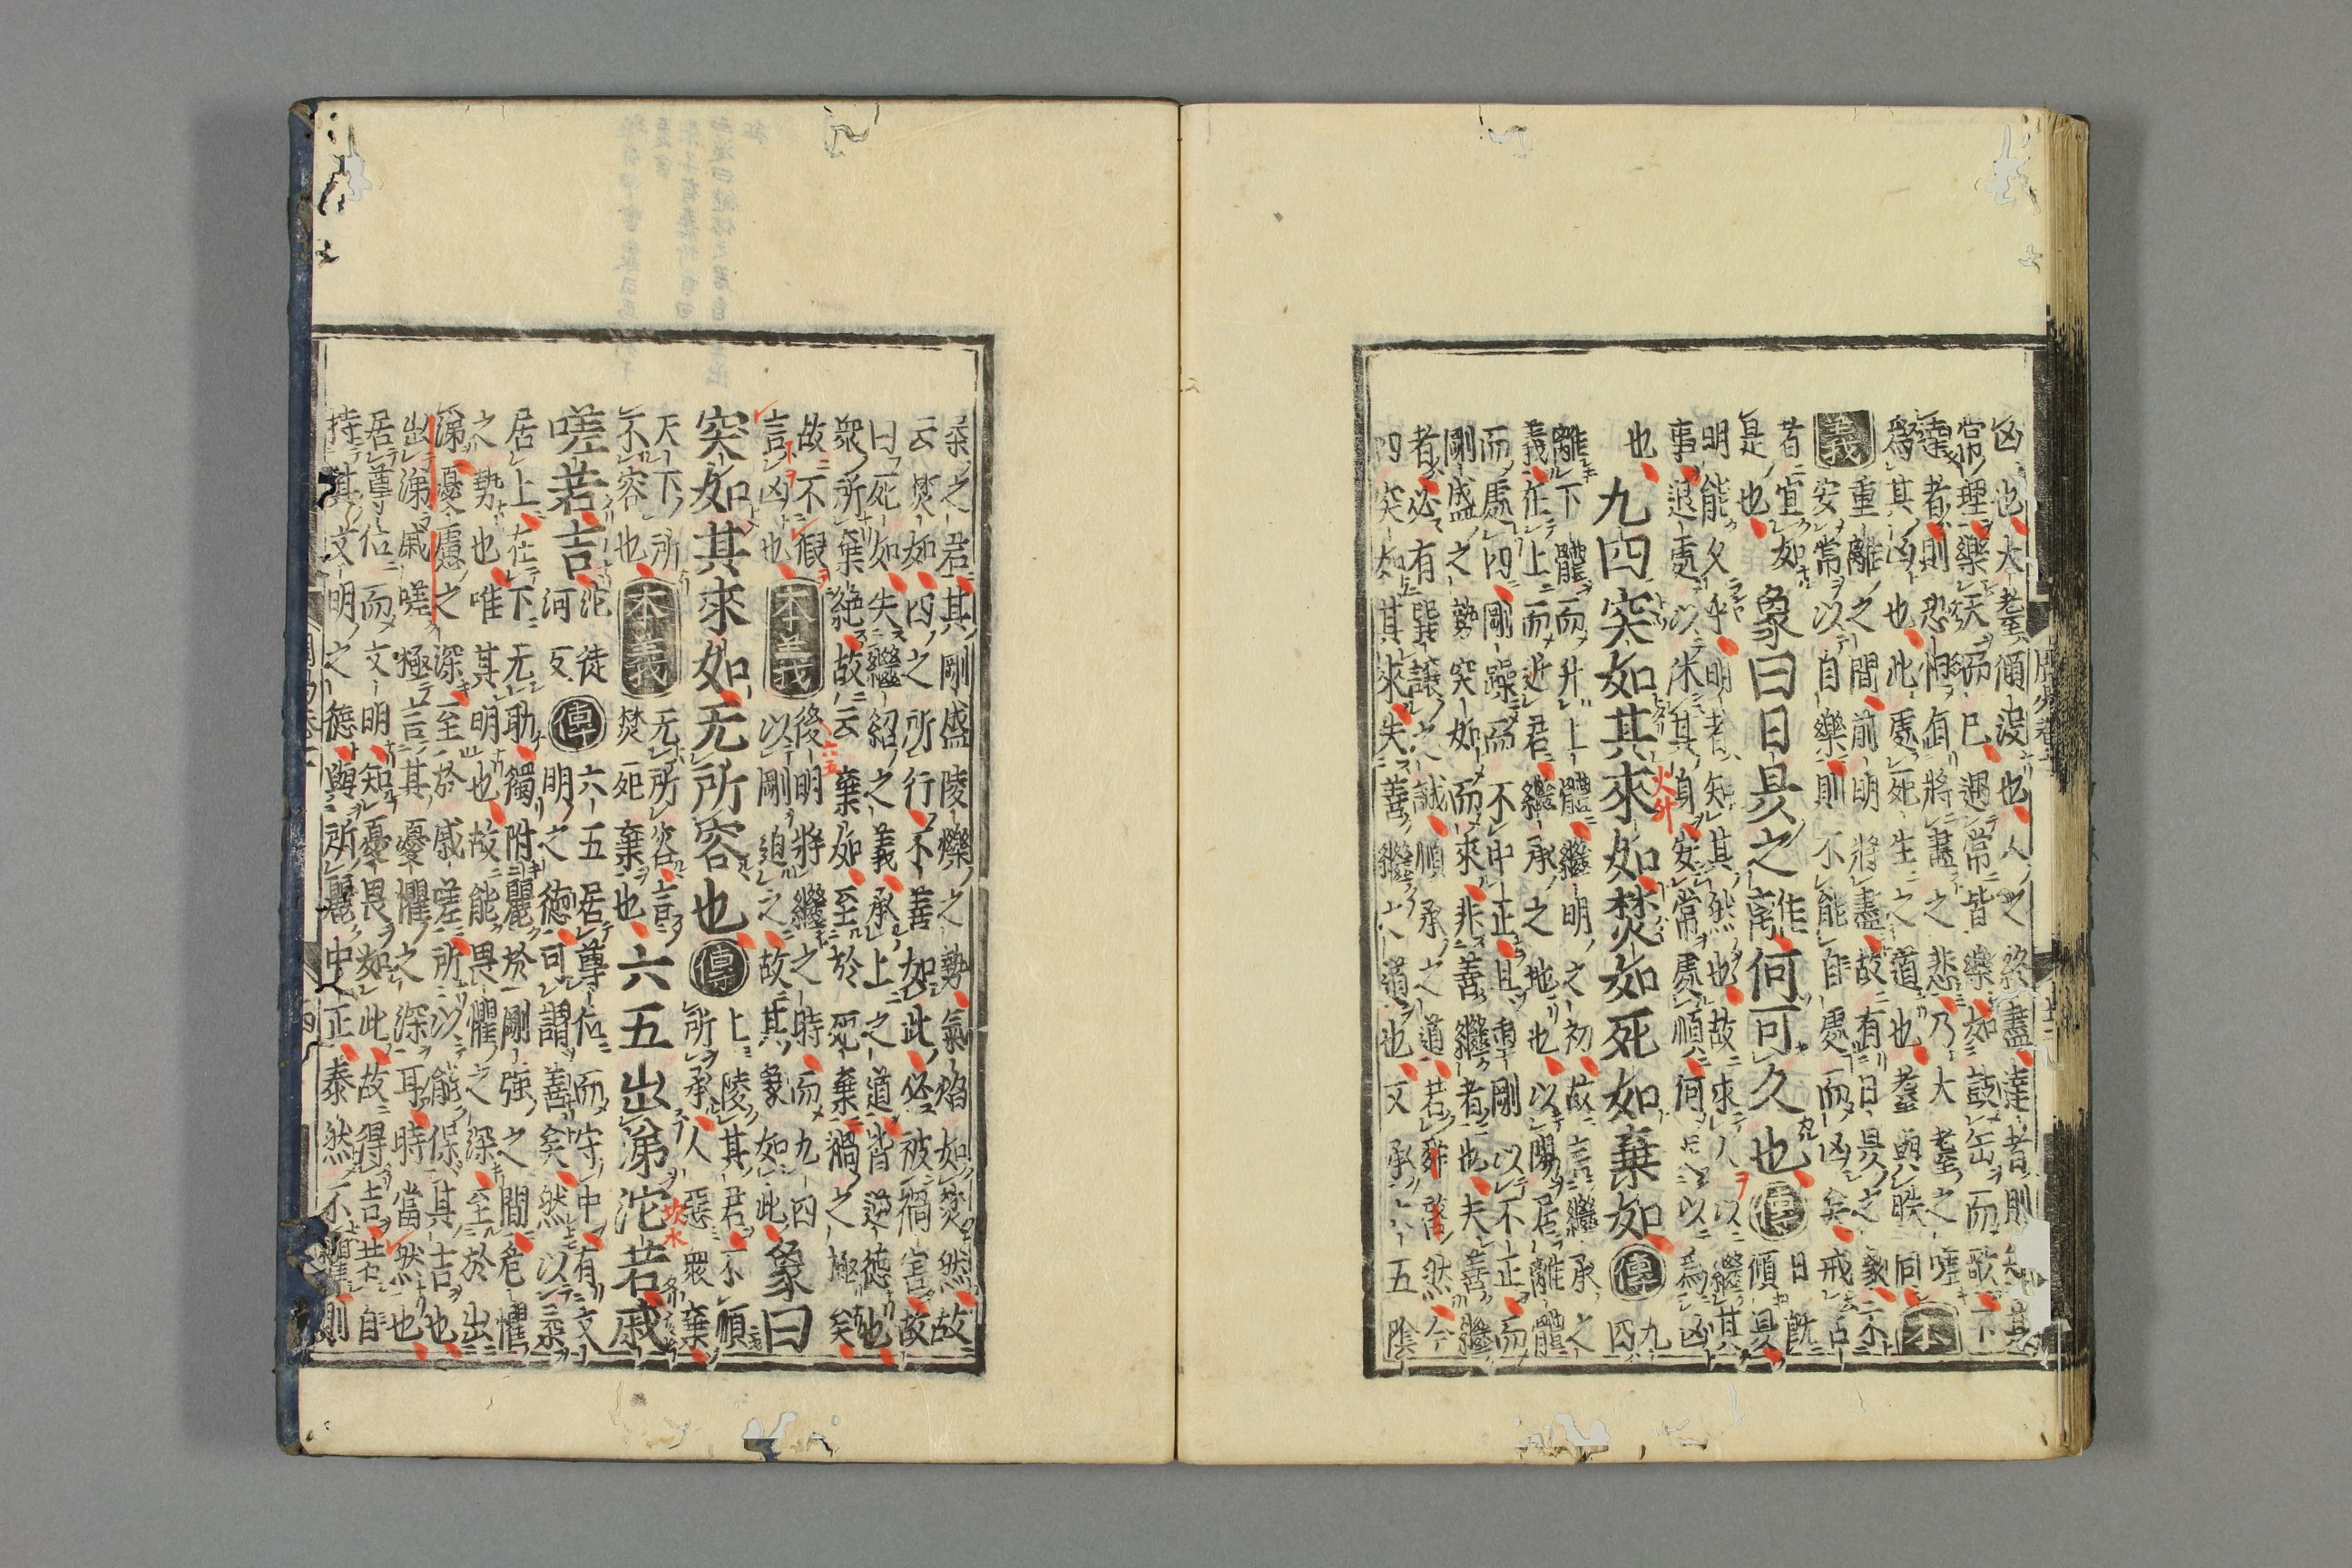 凶也大耋傾沒也人之終盡達者則知其
常理樂天而已遇常皆樂如鼓缶而歌不
達者則恐怛有將盡之悲乃大耋之嗟
為其凶也此處死生之道也耋與昳同本
義重離之間前明將盡故有日昃之象不
安常以自樂則不能自處而凶矣戒占
者宜如
是也
象曰日昃之離何可久也傳日既
傾昃
明能久乎明者知其然也故求人以繼其
事退處以休其身安常處順何足以為凶
也
九四突如其來如焚如死如棄如傳九
四
離下體而升上體繼明之初故言繼承之
義在上而近君繼承之地也以陽居離體
而處四剛躁而不中正且重剛以不正而
剛盛之勢突如而來非善繼者也夫善繼
者必有巽讓之誠順承之道若舜啓然今
四突如其來失善繼之道也又承六五陰
柔之君其剛盛陵爍之勢氣焰如焚然故
云焚如四之所行不善如此必被禍害故
曰死如失繼紹之義承上之道皆逆德也
衆所棄絕故云棄如至於死棄禍之極矣
故不假
言凶也
本義後明將繼之時而九四
以剛迫之故其象如此
象曰
突如其來如无所容也傳上陵其君不順
所承人惡眾棄
天下所
不容也
本義无所容言
焚死棄也
六五出涕沱若戚
嗟若吉沱徒
河反
傳六五居尊位而守中有文
明之德可謂善矣然以柔
居上在下无助獨附麗於剛強之間危懼
之勢也唯其明也故能畏懼之深至於出
涕憂慮之深至於戚嗟所以能保其吉也
出涕戚嗟極言其憂懼之深耳時當然也
居尊位而文明知憂畏如此故得吉若自
持其文明之德與所麗中正泰然不懼則
火升
坎水
六五